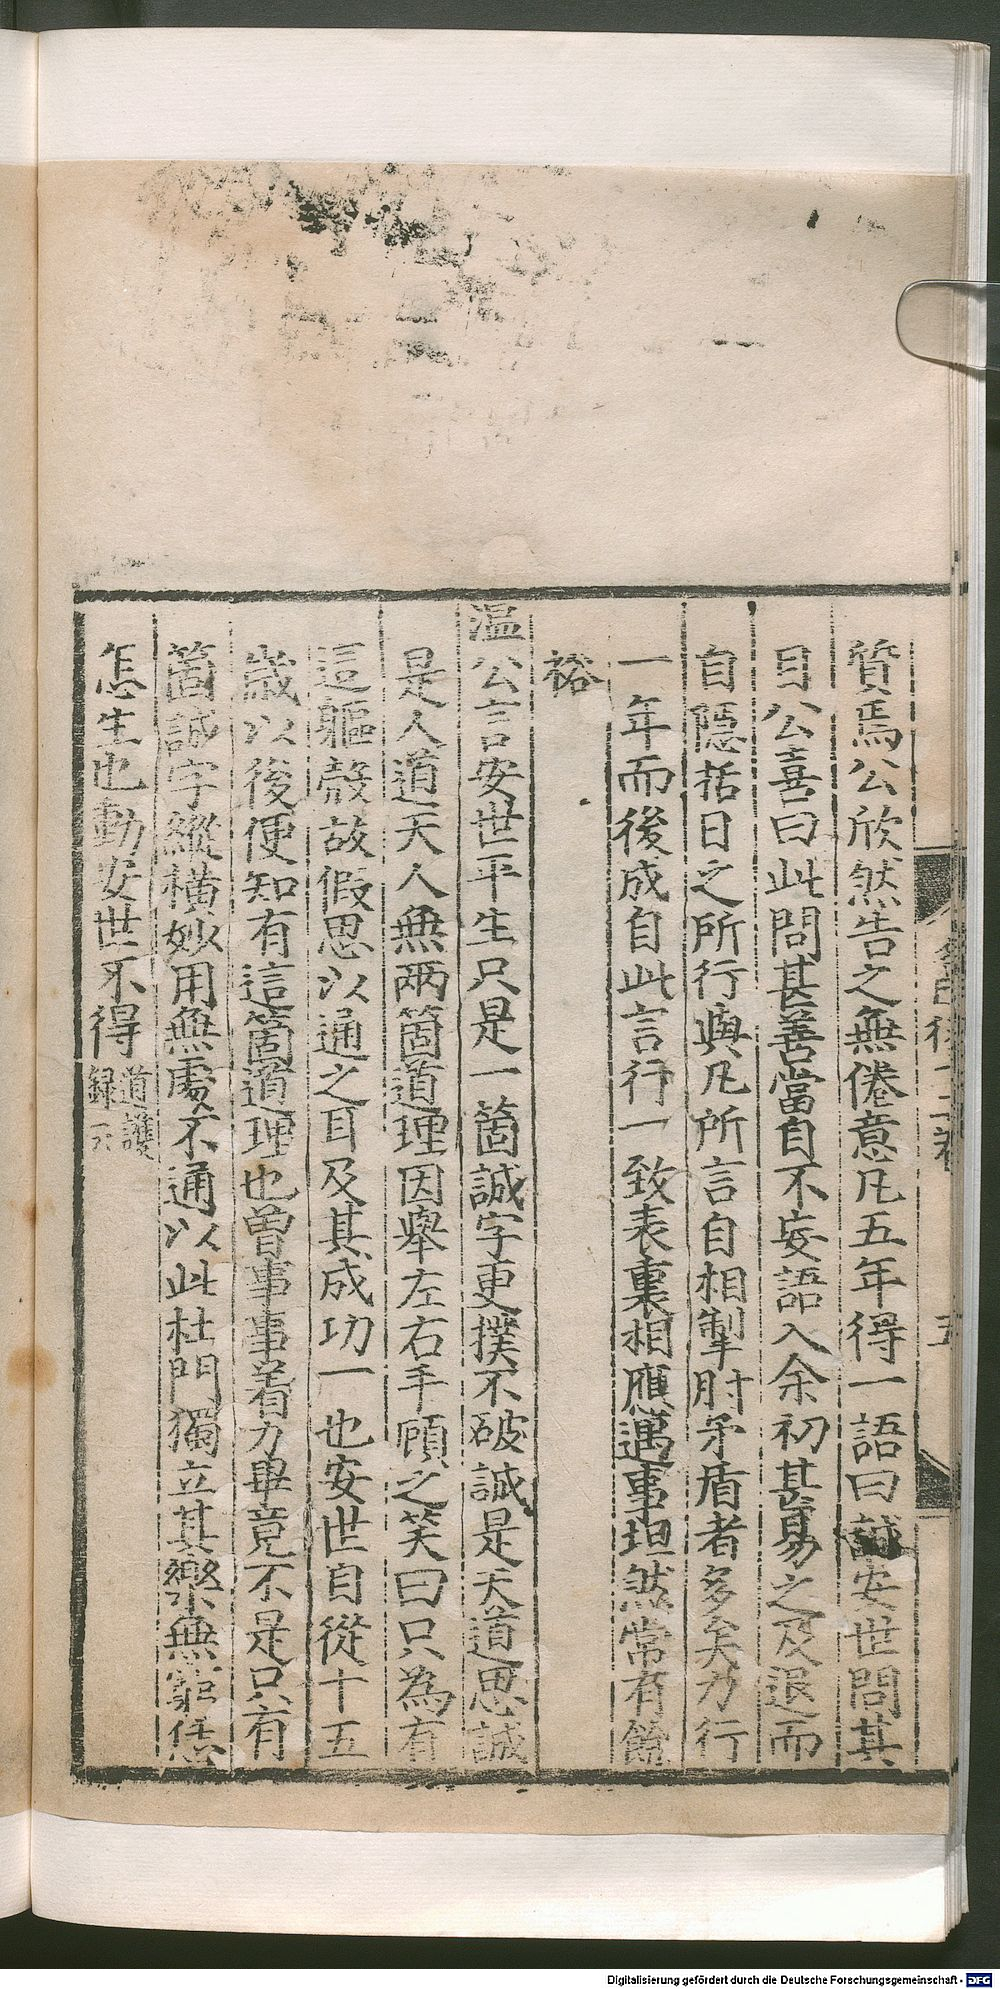 質焉公欣然告之無倦意凡五年得一語曰誠安世問其
目公喜曰此問甚善當自不妄語入余初甚易之及退而
自隱括日之所行與凡所言自相掣肘矛盾者多矣力行
一年而後成自此言行一致表裏相應遇事坦然常有餘
裕
温公言安世平生只是一箇誠字更撲不破誠是天道思誠
是人道天人無兩箇道理因舉左右手顧之笑曰只為有
這軀殼故假思以通之耳及其成功一也安世自從十五
歲以後便知有這箇道理也曾事事着力畢竟不是只有
箇誠字縱橫妙用無處不通以此杜門獨立其樂無窮恁
怎生也動安世不得道護
録云
五
Digitalisierung gefördert durch die Deutsche Forschungsgemeinschaft - DFG